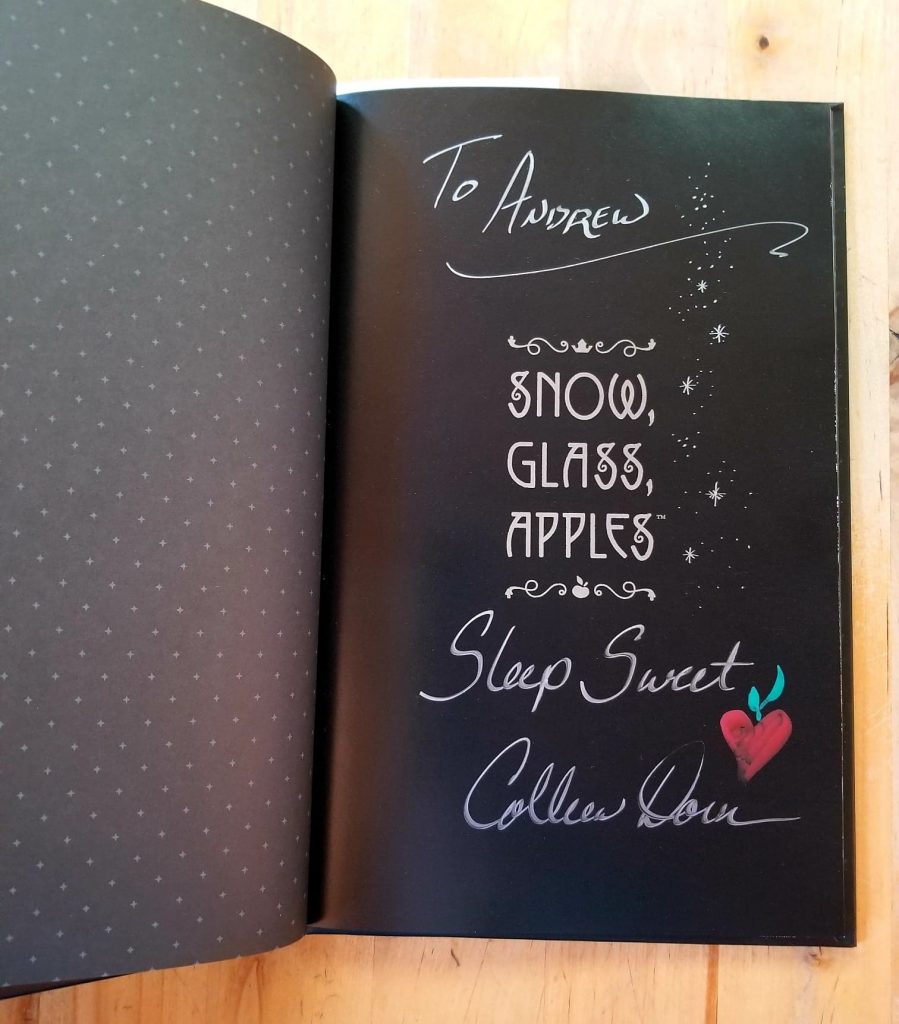 To ANDREW
SNOW,
GLASS,
APPLES™
Sleep Sweet
Colleen Doran